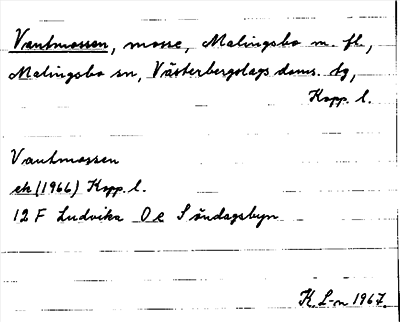 Vantmossen, mosse, Malingsbo m. fl.,
Malingsbo sn, Västerbergslags doms. tg,
Kopp. l.
Vantmossen
ek (1966) Kopp. l.
12 F Ludvika 0 e Söndagsbyn
K. L-n 1967.